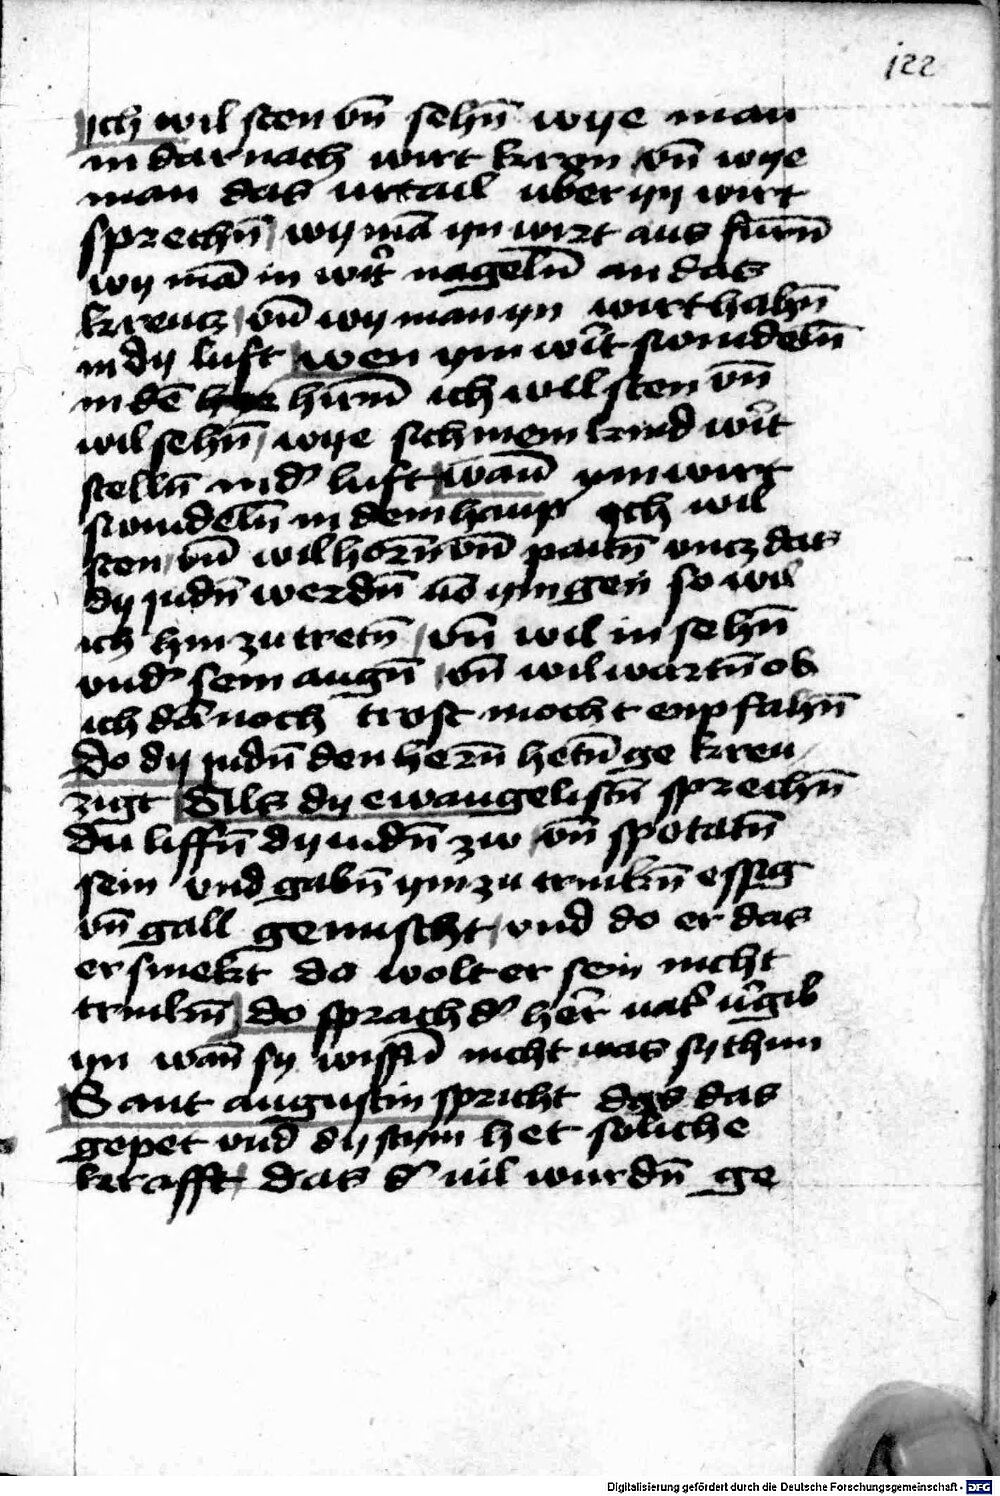 122
Ich wil sten vn̄ sehn̄ wije man
in dar nach wirt kron vn̄ wije
man das urtail uber yn wirt
sprechn̄ wij mā yn wirt aus furn̄
wij mā in wirt nageln̄ an das
kreucz vn̄ wij man yn wirt hahn̄
in dij luft wen ym wirt swindeln̄
in dē hirnn ich wil sten vn̄
wil sehn̄ wije sich mein kind wirt
stelln̄ in der luft wan̄ ym wirt
swindeln̄ in dem haup ych wil
sten vn̄ wil horn̄ vn̄ paitn̄ untz das
dij judn̄ werdn̄ uō ym gen so wil
ich hin zu tretn̄ vn̄ wil in sehn̄
under sein augn̄ vn̄ wil wartn̄ ob
ich dānoch trost mocht enpfahn̄
Do dij judn̄ den hern̄ hetn̄ ge kreu
zigt Als dij ewangelistn̄ sprechn̄
du liffn̄ dij judn̄ zw vn̄ spotatn̄
sein und gabn̄ ym zu trinkn̄ essig
vn̄ gall gemischt und do er das
er smekt do wolt er sein nicht
trinkn̄ do sprach der her vater vergib
yn wan̄ sy wissn̄ nicht was sy thun
Sant augustin spricht das das
gepet und dij stym het soliche
krafft das der vil wurdn̄ ge
Digitalisierung gefördert durch die Deutsche Forschungsgemeinschaft - DFG